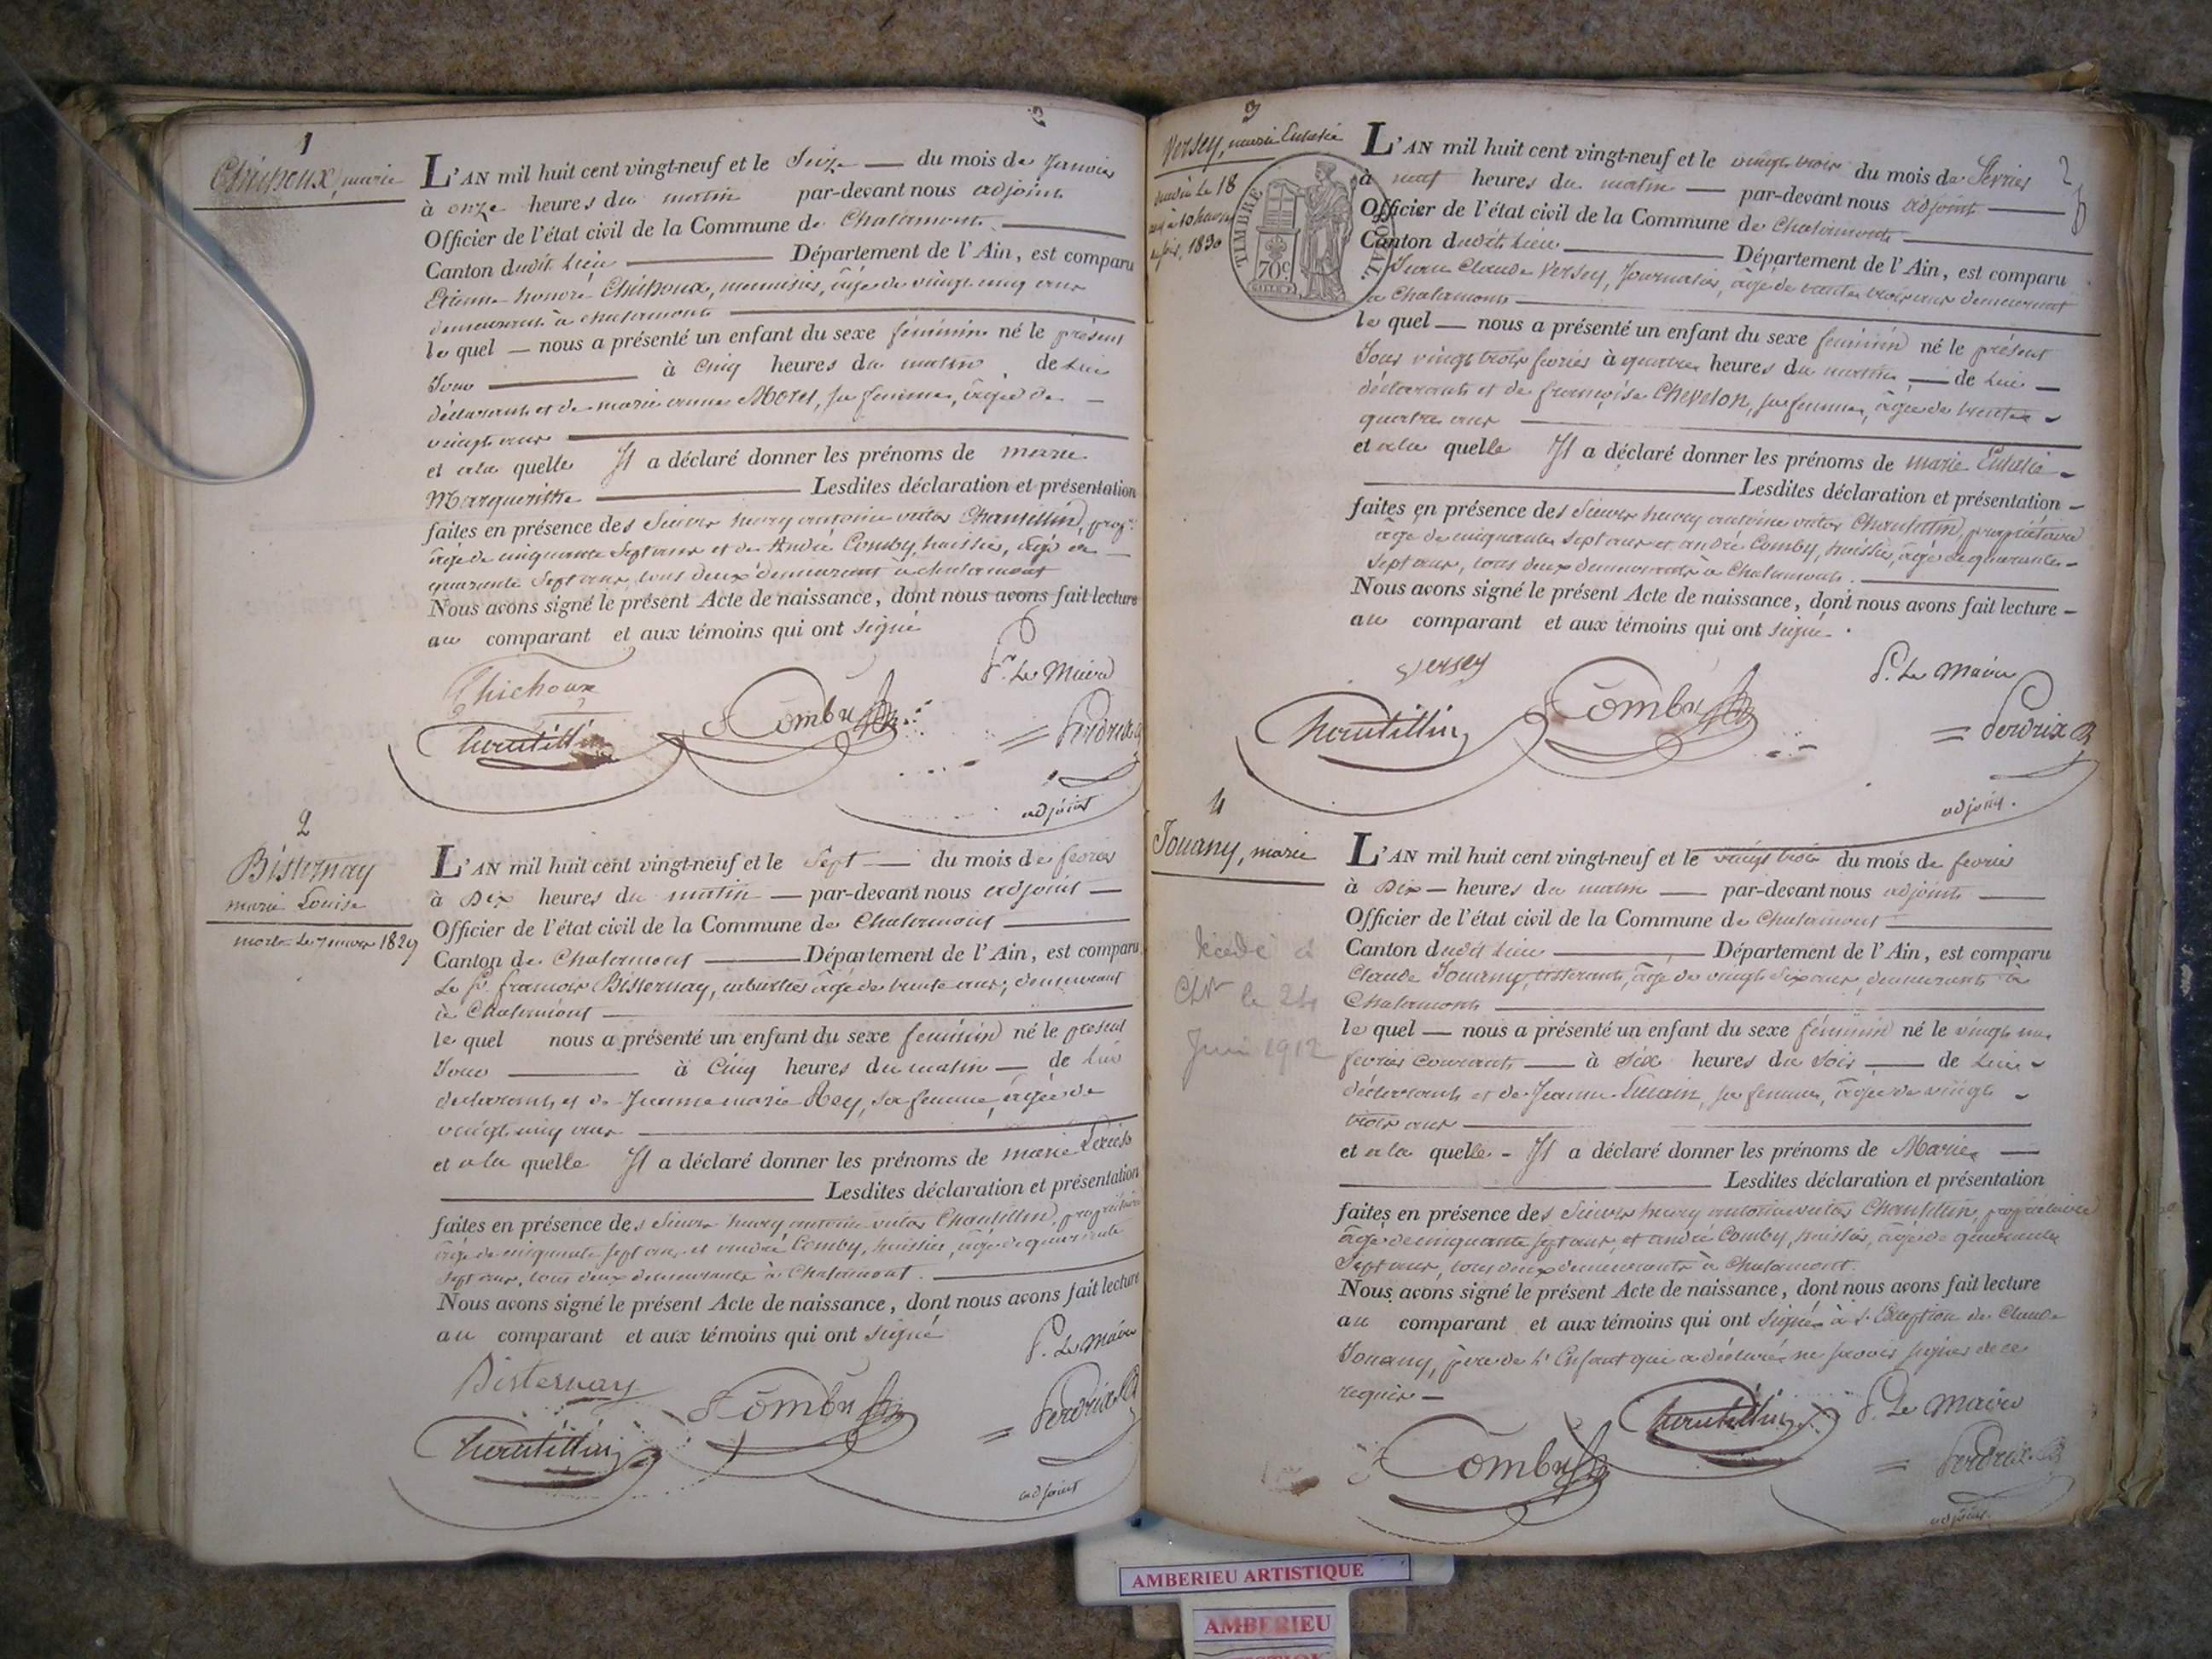 1
Chichoux, marie
L'AN mil huit cent vingt-neuf et le Seize du mois de Janvier
à onze heures du matin par-devant nous adjoint
Officier de l'état civil de la Commune de Chalamont
Canton dudit Lieu Département de l'Ain, est comparu
Etienne honoré Chichoux, menuisier, âgé de vingt cinq ans
demeurant à chalamont
le quel nous a présenté un enfant du sexe féminin né le présent
Jour à Cinq heures du matin de Lui
déclarant et de marie anne Morel, sa femme, âgée de
vingt ans
et a la quelle Il a déclaré donner les prénoms de marie
Marguerithe Lesdites déclaration et présentation
faites en présence des Sieurs henry antoine victor Chantillin, prop.re
âgé de cinquante Sept ans et de André Comby, huissier, âgé de
quarante Sept ans, tous deux demeurant a chalamont
Nous avons signé le présent Acte de naissance, dont nous avons fait lecture
au comparant et aux témoins qui ont signé
P.r Le Maire
Chichoux
Chantillin
A Comby
= Perdrix
adjoint
2
Bisternay
marie Louise
morte Le 7 1829
L'AN mil huit cent vingt-neuf et le Sept du mois de fevrier
à Dix heures du matin par-devant nous adjoint
Officier de l'état civil de la Commune de Chalamont
Canton de Chalamont Département de l'Ain, est comparu
Le Sr. francois Bisternay, âgé de trente ans, demeurant
à Chalamont
le quel nous a présenté un enfant du sexe féminin né le présent
Jour à Cinq heures du matin de Lui
déclarant et de Jeanne marie Rey, sa femme, âgée de
vingt cinq ans
et a la quelle Il a déclaré donner les prénoms de marie Louise
Lesdites déclaration et présentation
faites en présence des Sieurs henry antoine victor Chantillin, propriétaire
âgé de cinquante sept ans et andré Comby, huissier, âgé de quarante
Sept ans, tous deux demeurants à Chalamont.
Nous avons signé le présent Acte de naissance, dont nous avons fait lecture
au comparant et aux témoins qui ont signé
P. Le Maire
Bisternay
A Comby
Chantillin
= Perdrix
adjoint
3
Versey, marie Eulalie
Le 18
1830
TIMBRE ROYAL
70c
L'AN mil huit cent vingt-neuf et le vingt trois du mois de Février
à neuf heures du matin par-devant nous adjoint
Officier de l'état civil de la Commune de Chalamont
Canton dudit Lieu Département de l'Ain, est comparu
Jean Claude Versey, Journalier, âgé de trente trois ans demeurant
a Chalamont
le quel nous a présenté un enfant du sexe féminin né le présent
Jour vingt trois fevrier à quatre heures du matin de Lui
déclarant et de françoise Chevelon, sa femme, âgée de trente
quatre ans
et a la quelle Il a déclaré donner les prénoms de marie Eulalie
Lesdites déclaration et présentation
faites en présence des Sieurs henry antoine victor Chantillin, propriétaire
âgé de cinquante sept ans et andré Comby, huissier, âgé de quarante
Sept ans, tous deux demeurants à Chalamont.
Nous avons signé le présent Acte de naissance, dont nous avons fait lecture
au comparant et aux témoins qui ont signé
Versey
P. Le Maire
Chantillin
A Comby
= Perdrix
adjoint.
4
Jouany, marie
Décédé à
le 24
Juin 1912
L'AN mil huit cent vingt-neuf et le vingt trois du mois de fevrier
à Dix heures du matin par-devant nous adjoint
Officier de l'état civil de la Commune de Chalamont
Canton dudit Lieu Département de l'Ain, est comparu
Claude Jouany, tisserant, âgé de vingt Six ans, demeurant à
Chalamont
le quel nous a présenté un enfant du sexe féminin né le vingt un
fevrier courant à Six heures du Soir de Lui
déclarant et de Jeanne sa femme, âgée de vingt
trois ans
et a la quelle Il a déclaré donner les prénoms de Marie
Lesdites déclaration et présentation
faites en présence des Sieurs henry antoine victor Chantillin, propriétaire
âgé de cinquante sept ans, et andré Comby, huissier, âgé de quarante
Sept ans, tous deux demeurants à Chalamont.
Nous avons signé le présent Acte de naissance, dont nous avons fait lecture
au comparant et aux témoins qui ont signé à l'Exception de Claude
Jouany, père de l'Enfant qui a déclaré ne savoir signer de ce
requis
Chantillin
P. Le Maire
A Comby
= Perdrix
adjoint
AMBERIEU ARTISTIQUE
AMBERIEU